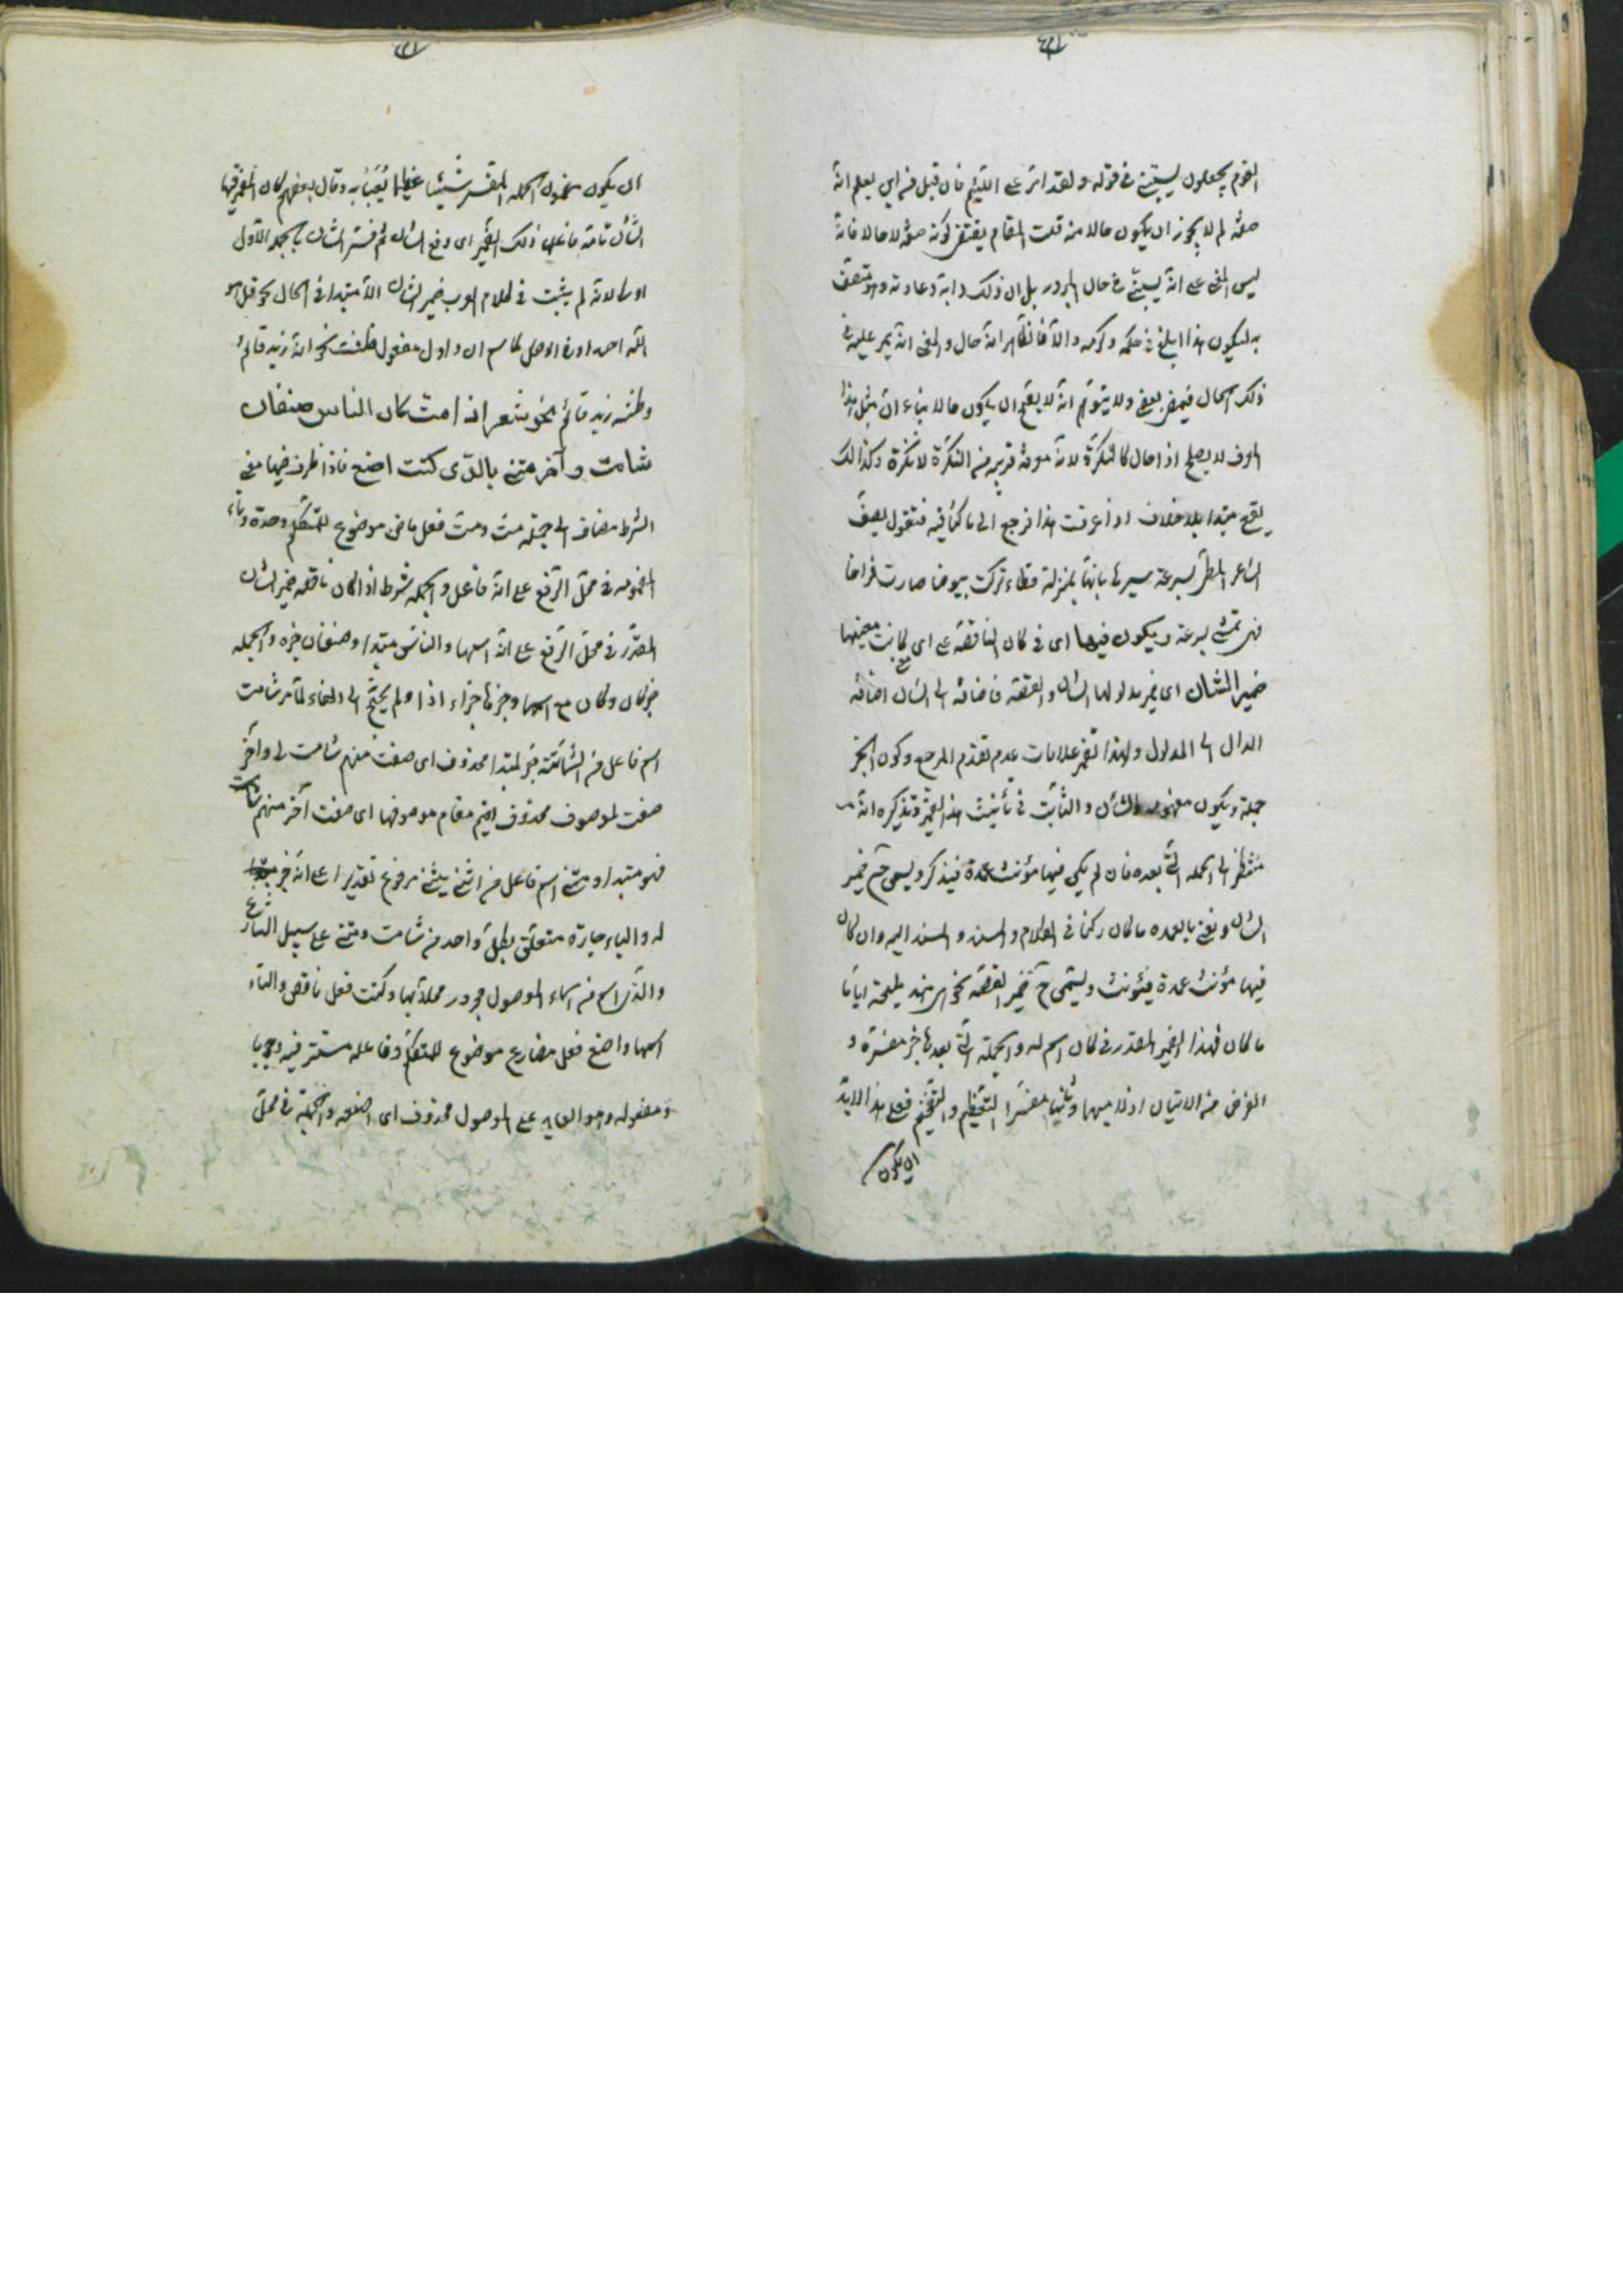 القوم يجعلون يسبنى فى قوله ولقد امر على اللئيم فان قيل من اين يعلم انه
صفة لم لا يجوز ان يكون حالا منه قلت المقام يقتضى كونه صفة لا حالا فانه
ليس المعنى على انه يسبنى فى حال المرور بل ان ذلك دابه وعادته وهو متصف
به ليكون هذا ابلغ فى حلمه وكرمه والا فالظاهر انه حال والمعنى انه يمر عليه فى
ذلك الحال فيمضى ولا يتوهم انه لا يقع ان يكون حالا بناء ان مثل هذا
المعرف لا يصلح ذا حال كالنكرة لانه معرفة قريبة من النكرة لا نكرة وكذا لك
يقع مبتدا بلا خلاف اذا عرفت هذا فرجع الى ما كنا فيه فنقول يصف
الشاعر المطى بسرعة سيرها بانها بمنزلة قطاء تركت بيوضا صارت فراخا
فهى تمشى بسرعة ويكون فيها اى فى كان الناقصة على اى كانت معنيها
ضمير الشان اى ضمير مدلولها الشان والقصة فاضافة الى الشان اضافة
الدال الى المدلول ولهذا الضمير علامات عدم تقدم المرجع وكون الخبر
جملة ويكون مفهومه الشان والثابت فى تأنيث هذا الضمير وتذكيره انه
منتظر الى الجملة التى بعده فان لم يكن فيها مؤنث عمدة فيذكر ويسمى ح ضمير
الشان ونعنى بالعمدة ما كان ركنا فى الكلام والمسند والمسند اليه وان كان
فيها مؤنث عمدة فيئونث ويسمى ح ضمير القصة نحو هى هند مليحة ايا ما
ما كان فهذا الضمير المقدر فى كان اسم له والجملة التى بعدها خبر مفسرة و
الغرض من الاتيان اولا مبهما وثانيا مفسرا التعظيم والتفخيم فعلى هذا لابد
ان يكون
ان يكون مضمون الجملة المفسر شيئا عظيما يعتنى به وقال بعضهم كان المضمر فيها
الشأن تامة فاعلها ذلك الضمير اى وقع الشان ثم فسر الشان بالجملة والاول
اولى لانه لم يثبت فى كلام العرب ضمير الشان الا مبتدا فى الحال نحو قل هو
الله احد او فى الاصل كاسم ان واول مفعول ظننت نحو انه زيد قائم
وظننته زيد قائم نحو شعر اذا مت كان الناس صنفان
شامت وآخر مثن بالذى كنت اصنع فاذا ظرف فيها معنى
الشرط مضاف الى جملة مت ومت فعل ماض موضوع للمتكلم وحده وتاء
المضمومة فى محل الرفع على انه فاعل والجملة شرط اذا كان ناقصة ضمير الشان
المقدر فى محل الرفع على انه اسمها والناس مبتدا وصنفان خبره والجملة
خبر كان وكان مع اسمها وخبرها جزاء اذا ولم يحتج الى الفاء لما مر شامت
اسم فاعل من الشماتة خبر لمبتدا محذوف اى صنف منهم شامت لى وآخر
صفت لموصوف محذوف اقيم مقام موصوفها اى صنف آخر منهم شامت
فهو مبتدا ومثن اسم فاعل من اثنى يثنى مرفوع تقديرا على انه خبر
له والباء جارة متعلق بكل واحد من شامت ومثن على سبيل التنازع
والذى اسم من اسماء الموصول مجرور محلا بها وكنت فعل ناقص والتاء
اسمها واصنع فعل مضارع موضوع للمتكلم وفاعله مستتر فيه وجوبا
ومفعوله وهو العايد على الموصول محذوف اى اصنعه والجملة فى محل